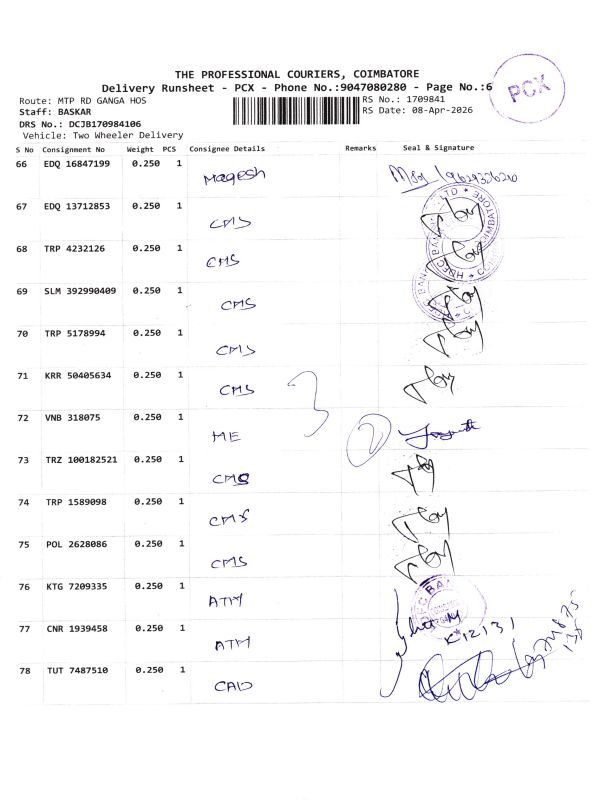 THE PROFESSIONAL COURIERS, COIMBATORE
Delivery Runsheet - PCX - Phone No.:9047080280 - Page No.:6
PCX
Route: MTP RD GANGA HOS
RS No.: 1709841
Staff: BASKAR
RS Date: 08-Apr-2026
DRS No.: DCJB170984106
Vehicle: Two Wheeler Delivery
S No Consignment No Weight PCS Consignee Details Remarks Seal & Signature
66 EDQ 16847199 0.250 1 Magesh
67 EDQ 13712853 0.250 1 CMS
68 TRP 4232126 0.250 1 CMS
69 SLM 392990409 0.250 1 CMS
70 TRP 5178994 0.250 1 CMS
71 KRR 50405634 0.250 1 CMS
72 VNB 318075 0.250 1 ME
2
73 TRZ 100182521 0.250 1 CMS
74 TRP 1589098 0.250 1 CMS
75 POL 2628086 0.250 1 CMS
76 KTG 7209335 0.250 1 ATM
77 CNR 1939458 0.250 1 ATM
K12131
78 TUT 7487510 0.250 1 CAD